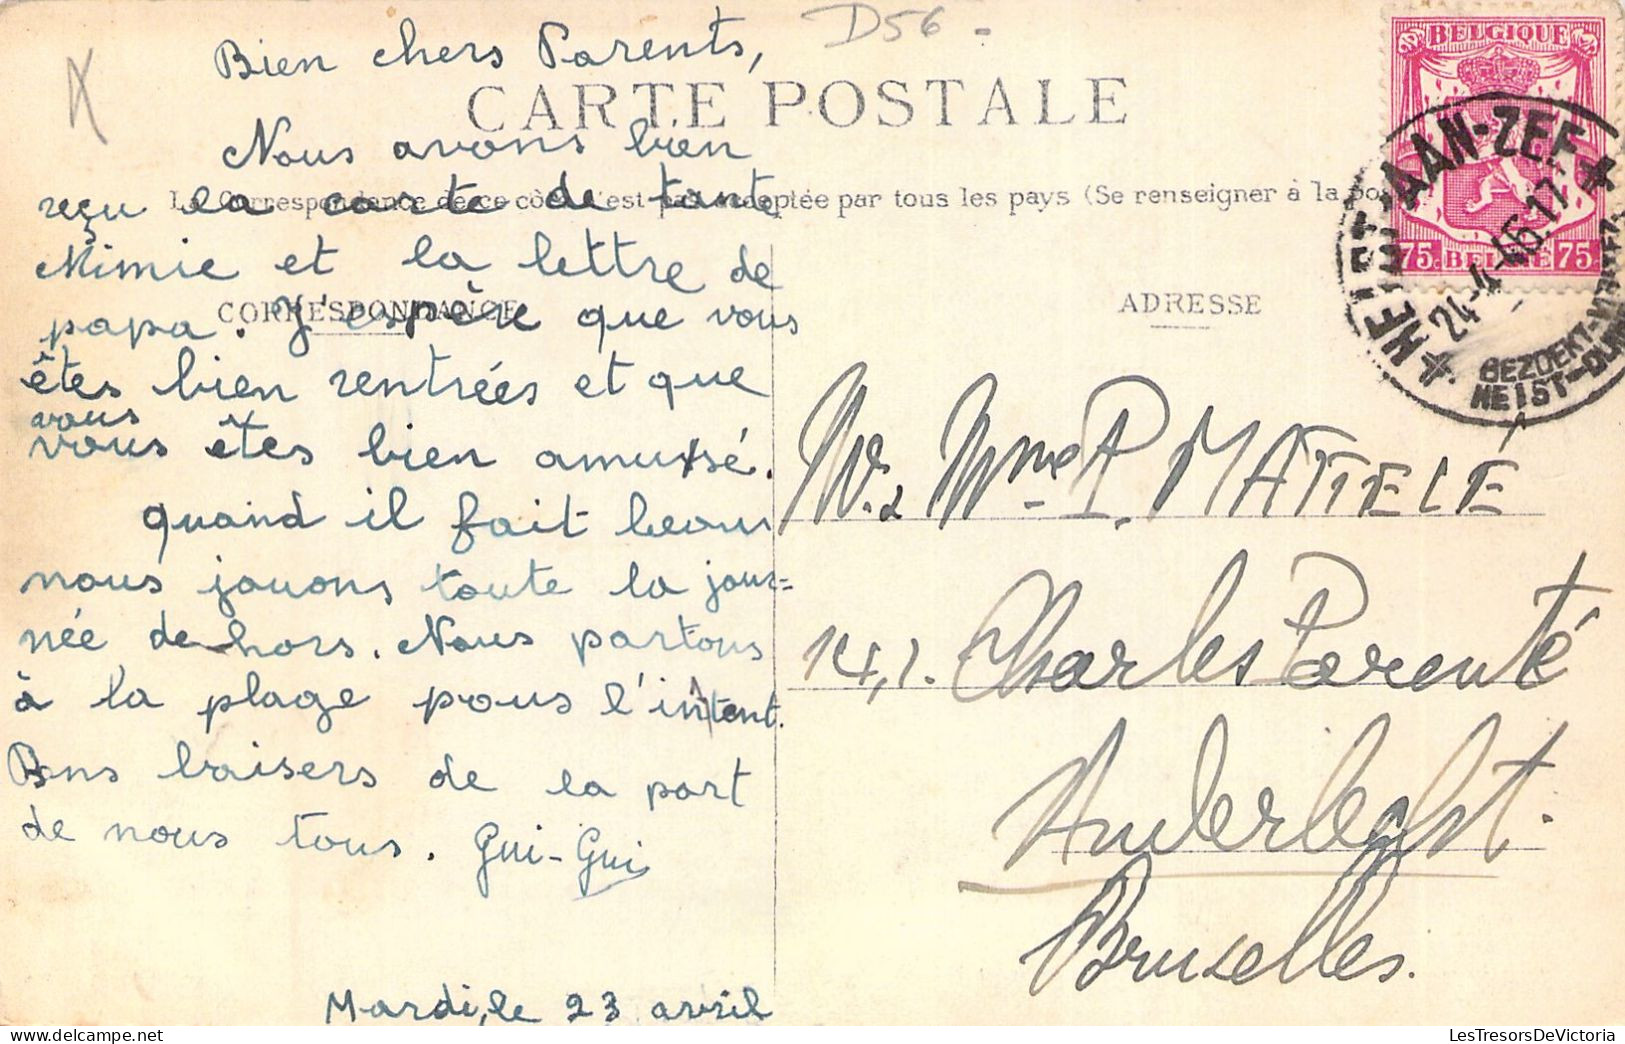 D56 -
Bien chers Parents,
CARTE POSTALE
Nous avons bien
La Correspondance de ce côté n'est pas acceptée par tous les pays (Se renseigner à la poste)
reçu la carte de tante
Mimie et la lettre de
CORRESPONDANCE
papa. J'espère que vous
êtes bien rentrées et que
vous
vous êtes bien amusé.
quand il fait beau
nous jouons toute la jour=
née dehors. Nous partons
à la plage pour l'intant.
Bons baisers de la part
de nous tous. Gui-Gui
Mardi, le 23 avril
ADRESSE
Mme P. MATTELÉ
141. Charles Parenté
Anderlecht.
Bruxelles.
BELGIQUE
75. BELGIË 75.
HEIST-AAN-ZEE
24-4-46.17
BEZOEKT-
HEIST-
LesTresorsDeVictoria.com